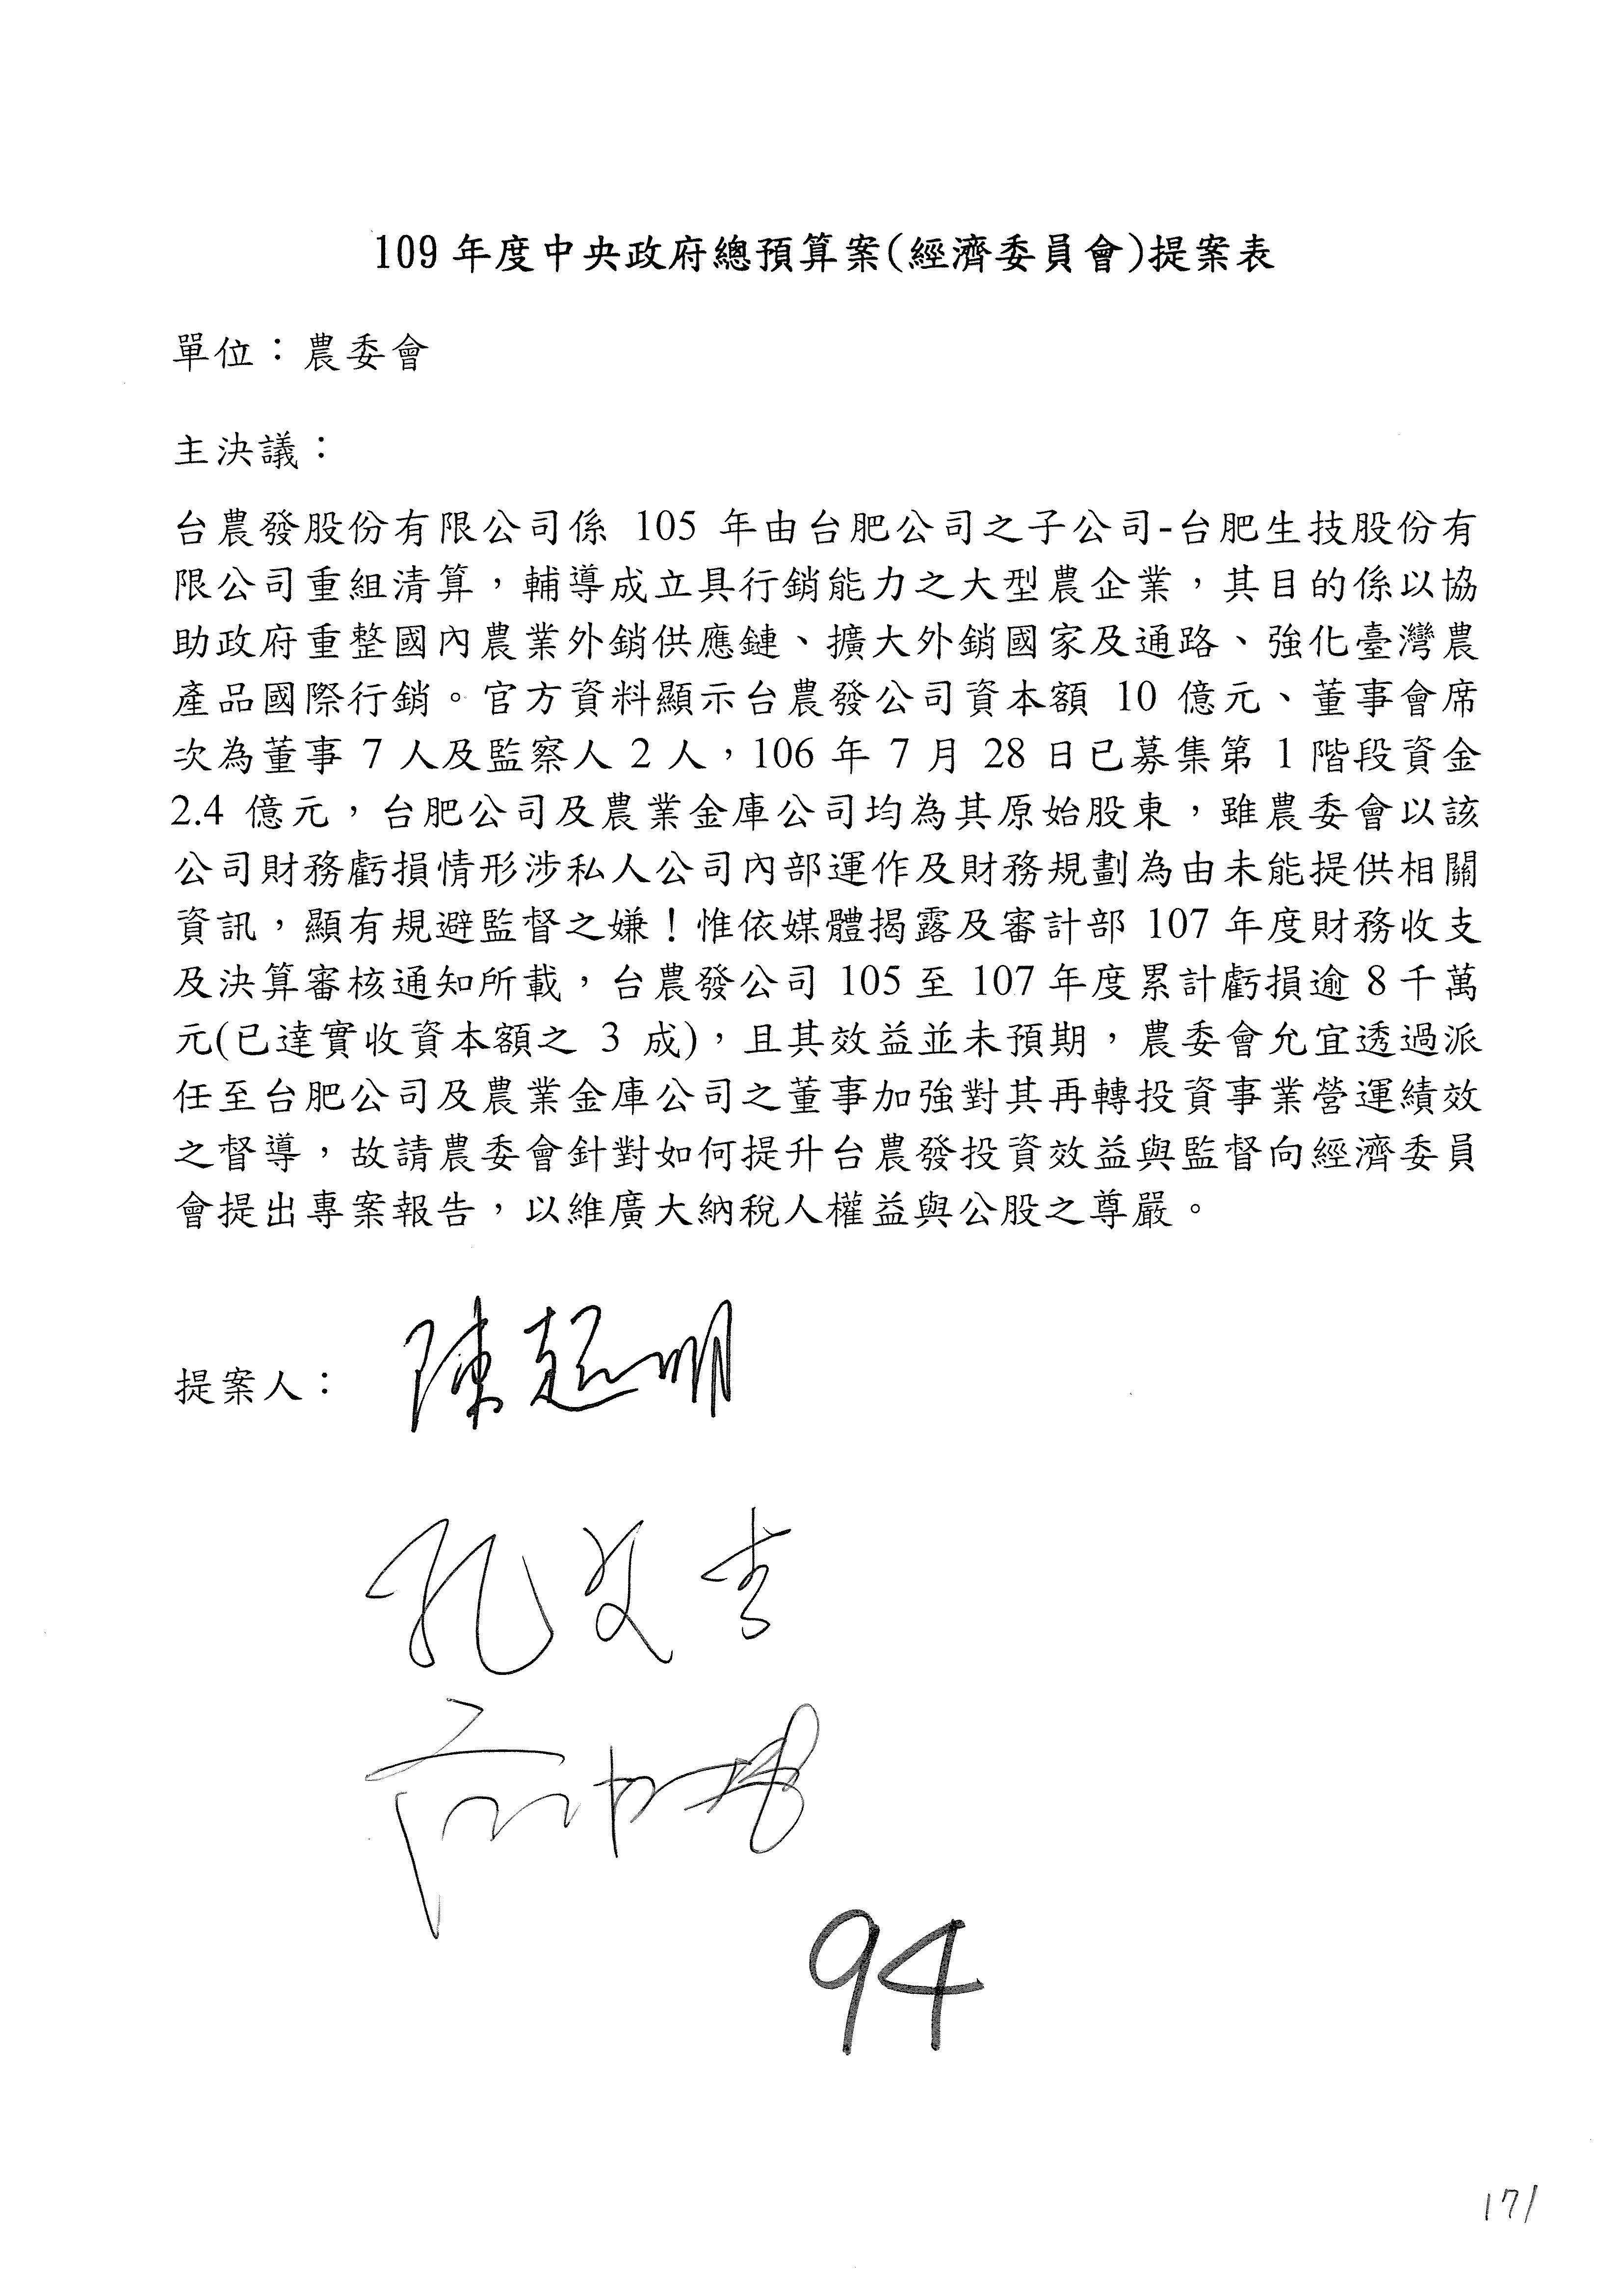 109年度中央政府總預算案(經濟委員會)提案表
單位：農委會
主決議：
台農發股份有限公司係 105 年由台肥公司之子公司-台肥生技股份有
限公司重組清算，輔導成立具行銷能力之大型農企業，其目的係以協
助政府重整國內農業外銷供應鏈、擴大外銷國家及通路、強化臺灣農
產品國際行銷。官方資料顯示台農發公司資本額 10 億元、董事會席
次為董事 7 人及監察人 2 人，106 年 7 月 28 日已募集第 1 階段資金
2.4 億元，台肥公司及農業金庫公司均為其原始股東，雖農委會以該
公司財務虧損情形涉私人公司內部運作及財務規劃為由未能提供相關
資訊，顯有規避監督之嫌！惟依媒體揭露及審計部 107 年度財務收支
及決算審核通知所載，台農發公司 105 至 107 年度累計虧損逾 8 千萬
元(已達實收資本額之 3 成)，且其效益並未預期，農委會允宜透過派
任至台肥公司及農業金庫公司之董事加強對其再轉投資事業營運績效
之督導，故請農委會針對如何提升台農發投資效益與監督向經濟委員
會提出專案報告，以維廣大納稅人權益與公股之尊嚴。
提案人： 陳超明
孔文吉
94
171